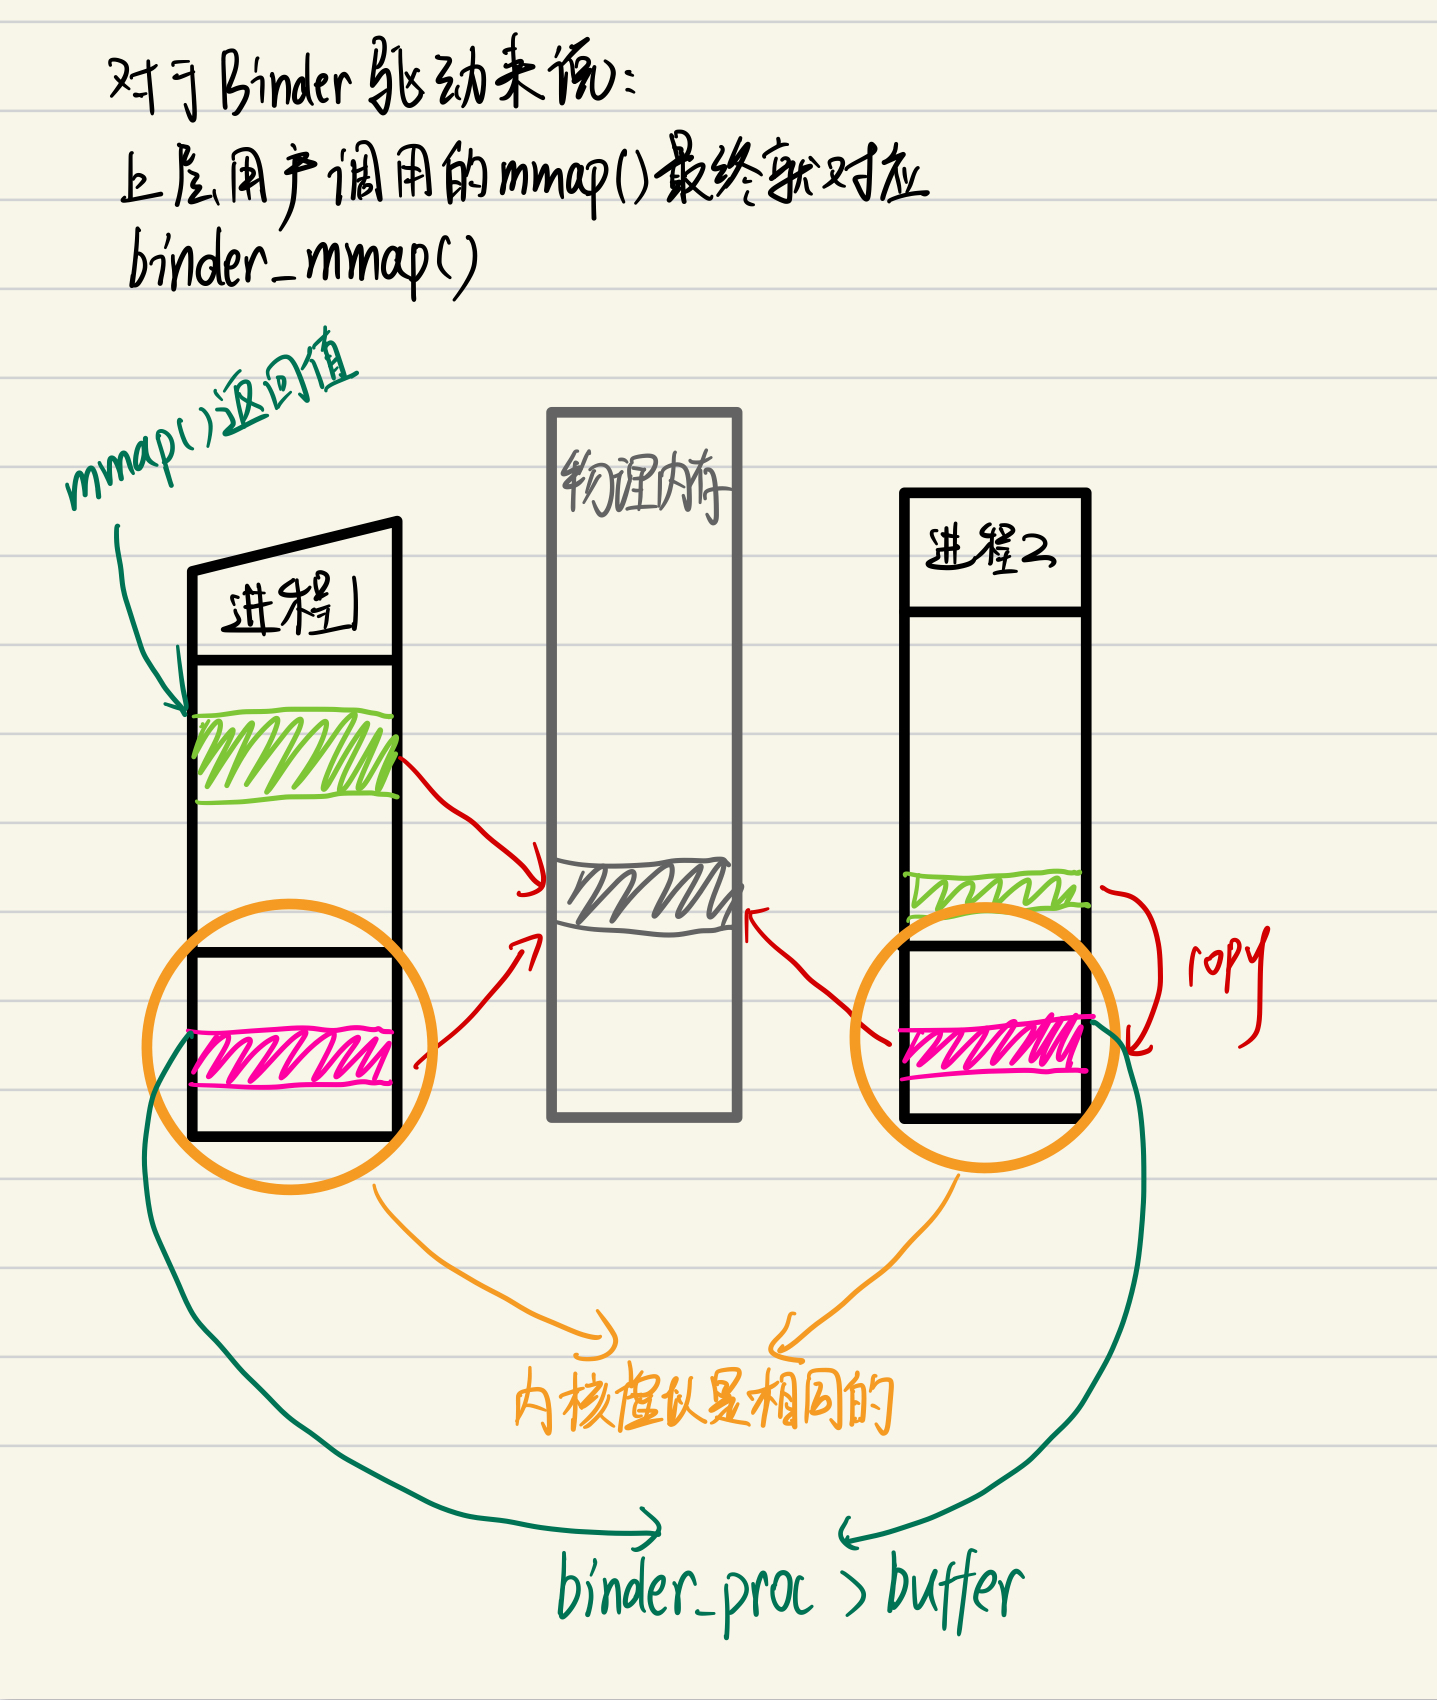 对于Binder驱动来说:
上层用户调用的mmap()最终就对应
binder_mmap()
mmap()返回值
物理内存
进程1
进程2
copy
内核虚拟是相同的
binder_proc > buffer